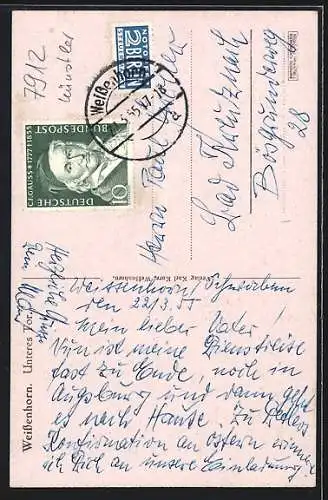 7912
Künstler
NOTOPFER
2 BERLIN
STEUERMARKE
Weißenhorn
d
C.F. GAUSS * 1777 † 1855
DEUTSCHE
BUNDESPOST
10
Herrn Paul
Bad Kreuznach
Bösgrunderweg
28
Verlag Karl Kurz, Weißenhorn.
Weißenhorn. Unteres Tor.
Weissenhorn/Schwaben
den 22/3.55
Mein lieber Vater!
Nun ist meine Dienstreise
fast zu Ende, noch in
Augsburg und dann geht
es nach Hause. Zu
Konfirmation an Ostern
ich Dich an unsere Einladung!
Herzliche Grüße
Dein